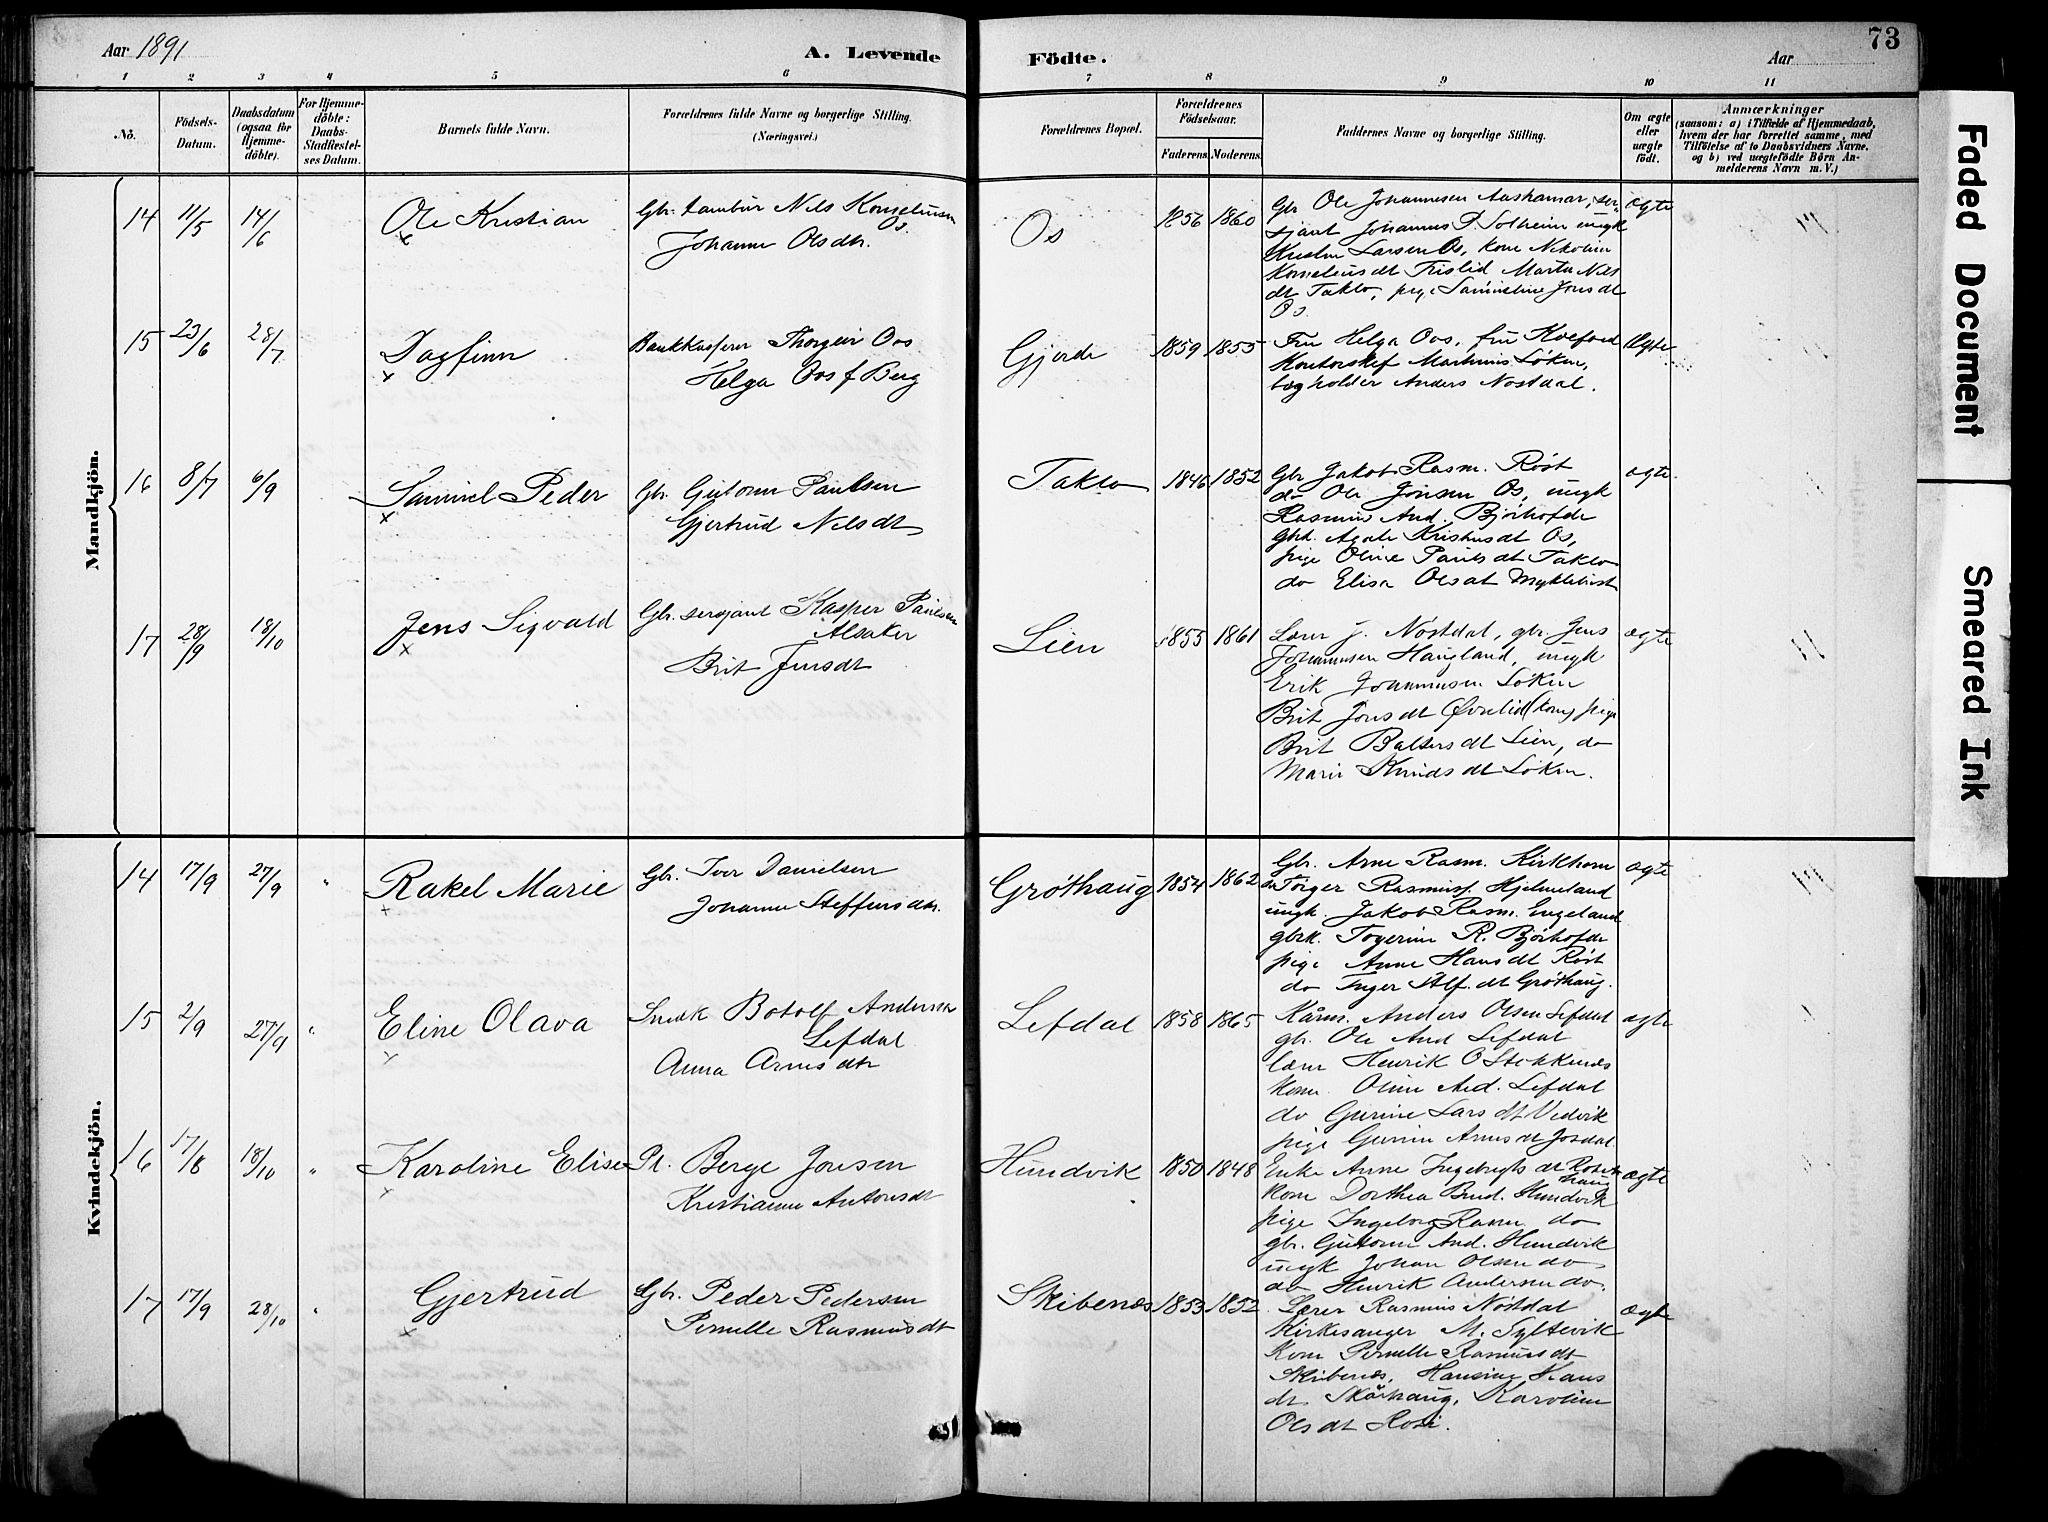 Aar 1891
A. Levende Födte.
Aar
73
1 2 3 4 5 6 7 8 9 10 11
No.
Födsels-Datum.
Daabsdatum (ogsaa for Hjemmedöbte).
For Hjemmedöbte: Daabs-Stadfæstelses Datum.
Barnets fulde Navn.
Forældrenes fulde Navne og borgerlige Stilling. (Næringsvei.)
Forældrenes Bopæl.
Forældrenes Födselsaar.
Faderens. Moderens.
Faddernes Navne og borgerlige Stilling.
Om ægte eller uægte födt.
Anmærkninger
(saasom: a) i Tilfælde af Hjemmedaab,
hvem der har forrettet samme, med
Tilföielse af to Daabsvidners Navne,
og b) ved uægtefödte Börn An-
melderens Navn m. V.)
Mandkjön.
14 11/5 14/6 Ole Kristian
Gbr. tambur Nils Korneliusen
Os.
Johanne Olsdtr.
Os 1856 1860
Gbr Ole Johannesen Aashamar, ser-
sjant Johannes P. Solheim ungk
Larsen Os, kone Nikoline
Korneliusdt Trislid Marta Nils
dt Taklo, pige Jonsdt
Os.
ægte
15 23/6 28/7 Dagfinn
Bankkasserer Thorgeir Oos
Helga Oos f Berg
Gjerde 1859 1855
Fru Helga Oos, fru Koefoed
Kontorchef Martinus Løken,
bogholder Anders Nøstdal.
Ægte
16 8/7 6/9 Samuel Peder
Gbr. Guttorm Paulsen
Gjertrud Nilsdt
Taklo 1846 1852
Gbr Jakob Rasm. Røst
do Ole Jonsen Os, ungk
Rasmus And. Bjørhofde
gbk. Agate Kristensdt Os,
pige Oline Paulsdt Taklo
do Elisa Olsdt Myklebust
ægte
17 28/9 18/10 Jens Sigvald
Gbr. sersjant Kasper Paulsen
Alsaker
Brit Jensdt
Lien 1855 1861
Lærer J. Nøstdal, gbr. Jens
Johannesen Haugland, ungk
Erik Johannesen Løken
Brit Jonsdt Øvrelid (kone) pige
Brit Baltersdt Lien, do
Marie Knudsdt Løken.
ægte
Kvindekjön.
14 17/9 27/9 " Rakel Marie
Gbr. Iver Danielsen
Johanne Steffensdtr.
Grøthaug 1854 1862
Gbr. Arne Rasm. Kirkhorn
do Torger Rasmuss. Hjelmeland
ungk. Jakob Rasm. Engeland
gbrk. Torgerine R. Bjørhofde
pige Anne Hansdt Røst
do Inger Stef.dt Grøthaug.
ægte
15 2/9 27/9 " Eline Olava
Snedk Botolf Andersen
Lefdal
Anna Arnesdtr
Lefdal 1858 1865
Kårm. Anders Olsen Lefdal
gbr. Ole And Lefdal
lærer Henrik O Stokkenes
kone Oline And. Lefdal
do Gurine Larsdt Vedvik
pige Gurine Arnesdt Josdal
ægte
16 17/8 18/10 " Karoline Elise
Pl. Berge Jonsen
Kristianne Antonsdt
Hundvik 1850 1848
Enke Anne Ingebrigtsdt
kone Dorthea Bernd. Hundvik
pige Ingeborg Rasm. do
gbr. Guttorm And. Hundvik
ungk Johan Olsen do
do Henrik Andersen do.
ægte
17 17/9 28/10 " Gjertrud
Gbr. Peder Pedersen
Pernille Rasmusdt
Skibenes 1853 1852
Lærer Rasmus Nøstdal
Kirkesanger M. Syltevik
Kone Pernille Rasmusdt
Skibenes, Hansine Hans
dt Skårhaug, Karoline
Olsdt Rosi.
ægte
Faded Document
Smeared Ink